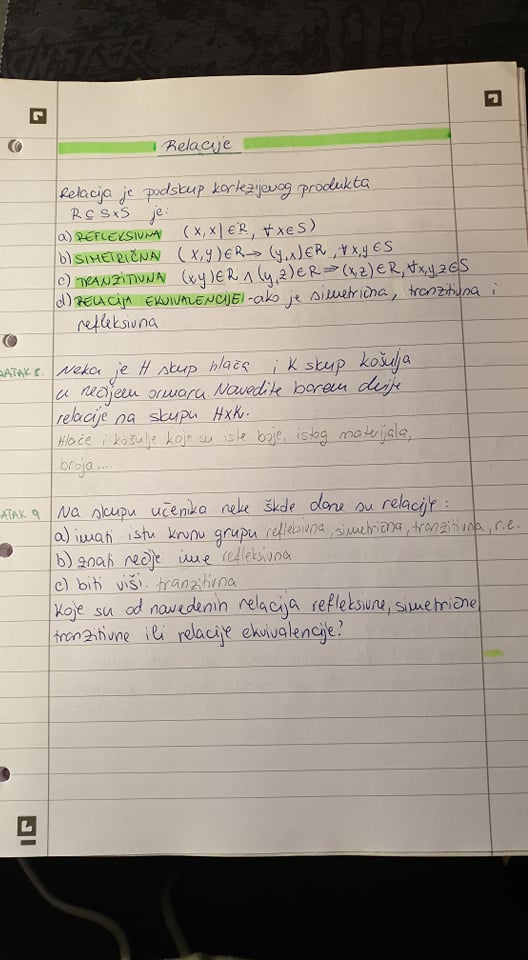 Relacije
Relacija je podskup kartezijevog produkta
R ⊆ S×S je:
a) REFLEKSIVNA (x,x) ∈ R, ∀x∈S)
b) SIMETRIČNA (x,y)∈R → (y,x)∈R, ∀x,y∈S
c) TRANZITIVNA (x,y)∈R ∧ (y,z)∈R ⇒ (x,z)∈R, ∀x,y,z∈S
d) RELACIJA EKVIVALENCIJE - ako je simetrična, tranzitivna i
refleksivna
DATAK 8. Neka je H skup hlača i K skup košulja
u nečijem ormaru. Navedite barem dvije
relacije na skupu H×K.
Hlače i košulje koje su iste boje, istog materijala,
broja....
ATAK 9 Na skupu učenika neke škole dane su relacije:
a) imati istu krvnu grupu refleksivna, simetrična, tranzitivna, r.e.
b) znati nečije ime refleksivna
c) biti viši. tranzitivna
Koje su od navedenih relacija refleksivne, simetrične,
tranzitivne ili relacije ekvivalencije?